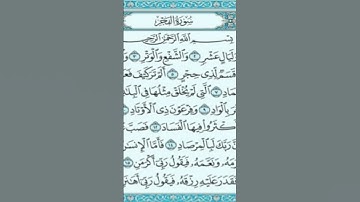 سُورَةُ الفَجْرِ
بِسْمِ ٱللَّهِ ٱلرَّحْمَٰنِ ٱلرَّحِيمِ
وَلَيَالٍ عَشْرٍ ٢ وَٱلشَّفْعِ وَٱلْوَتْرِ ٣
قَسَمٌ لِّذِى حِجْرٍ ٥ أَلَمْ تَرَ كَيْفَ فَعَ
ٱلَّتِى لَمْ يُخْلَقْ مِثْلُهَا فِى ٱلْبِلَٰدِ
بِٱلْوَادِ ٩ وَفِرْعَوْنَ ذِى ٱلْأَوْتَادِ
فَأَكْثَرُوا۟ فِيهَا ٱلْفَسَادَ ١٢ فَصَبَّ
رَبَّكَ لَبِٱلْمِرْصَادِ ١٤ فَأَمَّا ٱلْإِنسَٰ
وَنَعَّمَهُۥ فَيَقُولُ رَبِّىٓ أَكْرَمَنِ
فَقَدَرَ عَلَيْهِ رِزْقَهُۥ فَيَقُولُ رَبِّىٓ أَهَٰنَ